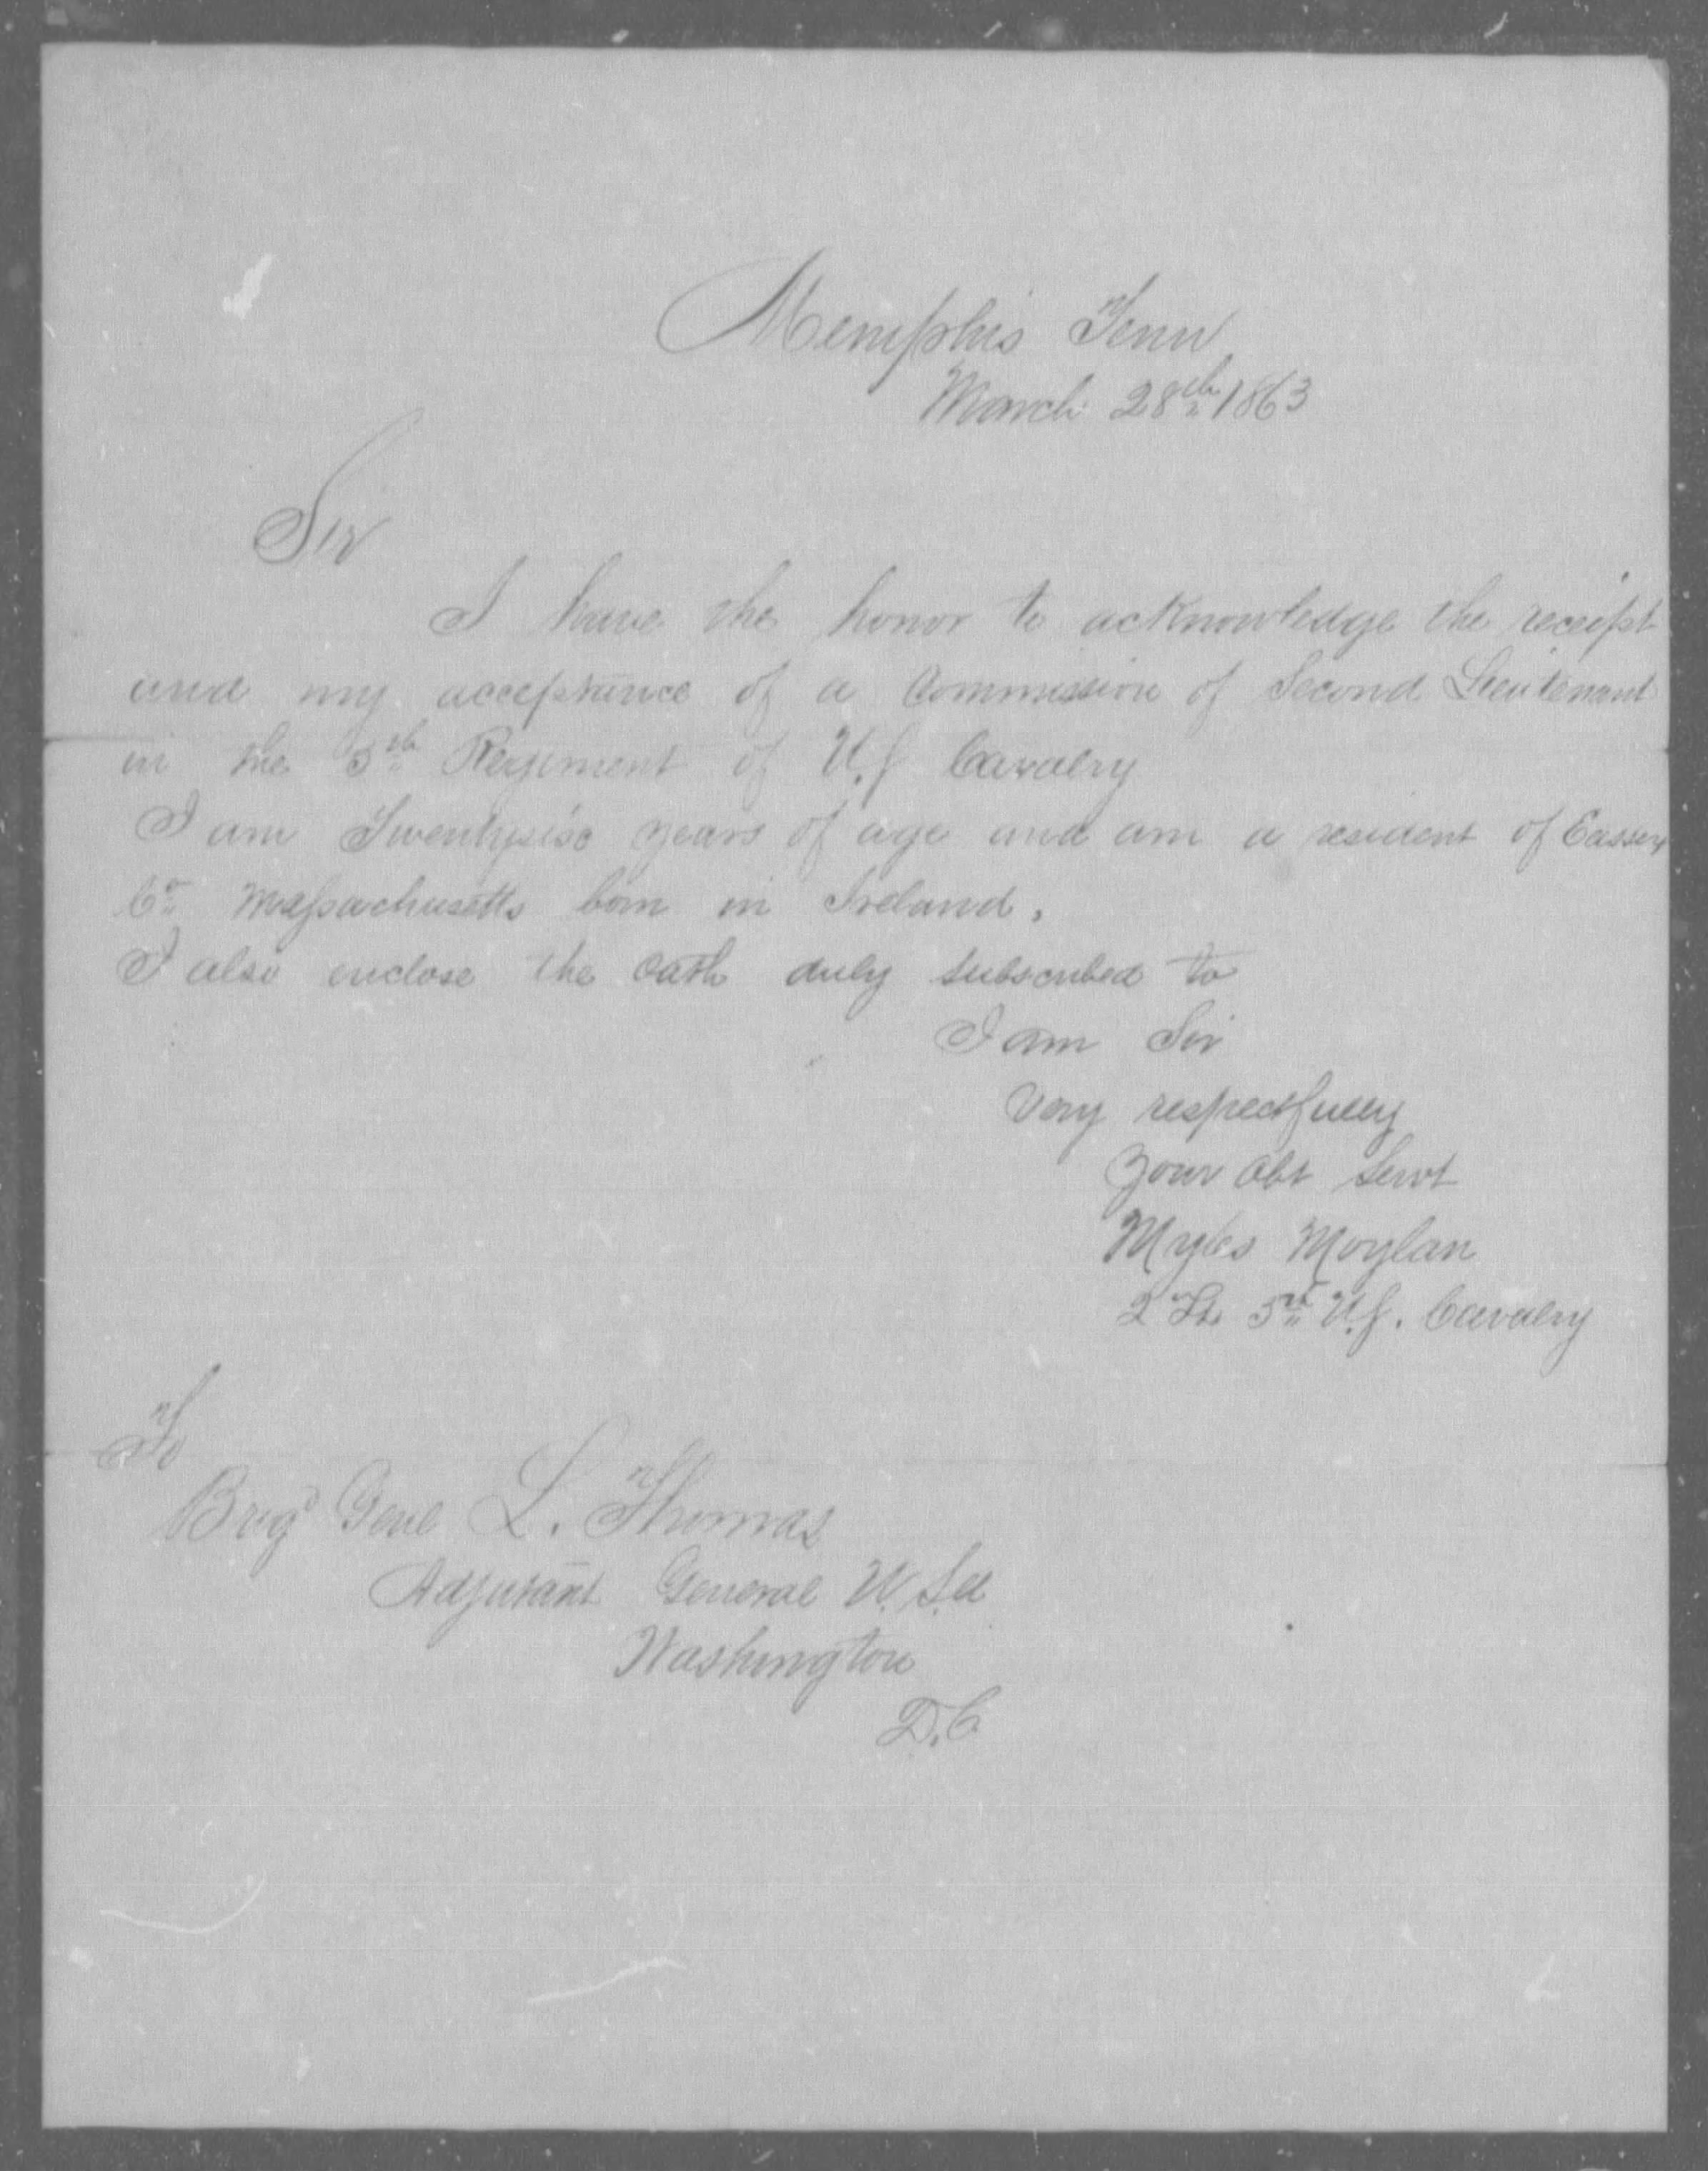 Memphis Tenn
March 28th 1863
Sir
I have the honor to acknowledge the receipt
and my acceptance of a Commission of Second Lieutenant
in the 5th Regiment of U.S Cavalry
I am Twentysix years of age and am a resident of Eassex
Co Massachusetts born in Ireland.
I also enclose the Oath duly subscribed to
I am Sir
Very respectfully
Your Obt Servt
Myles Moylan
2 Lt. 5th U.S. Cavalry
To
Brigd Genl L. Thomas
Adjutant General U.S.A
Washington
D.C